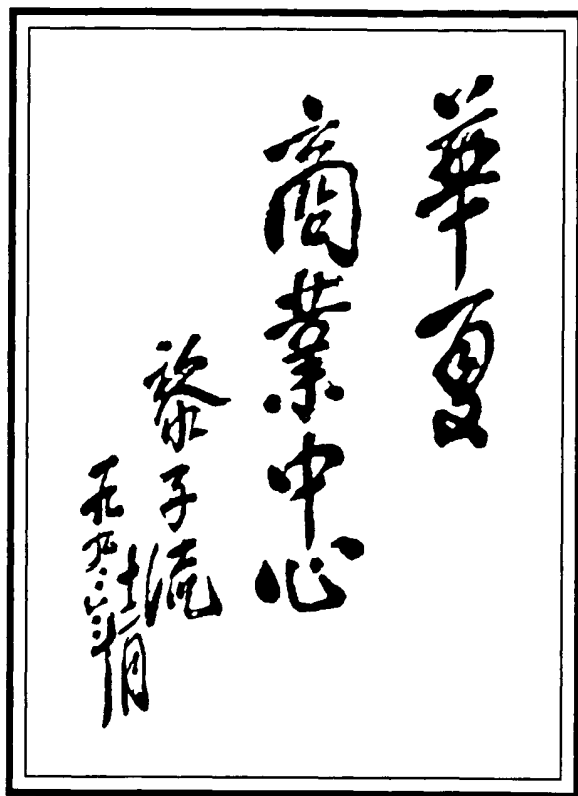 華夏
商業中心
黎子流
一九九〇年
十一月